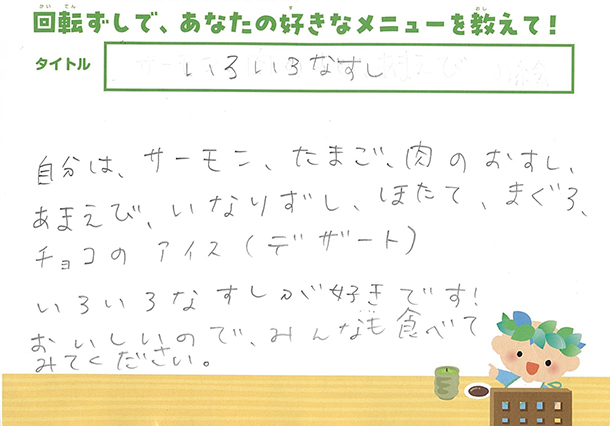 回転ずしで、あなたの好きなメニューを教えて!
タイトル
いろいろなすし
自分は、サーモン、たまご、肉のおすし、
あまえび、いなりずし、ほたて、まぐろ、
チョコのアイス(デザート)
いろいろなすしが好きです!
おいしいので、みんなも食べて
みてください。